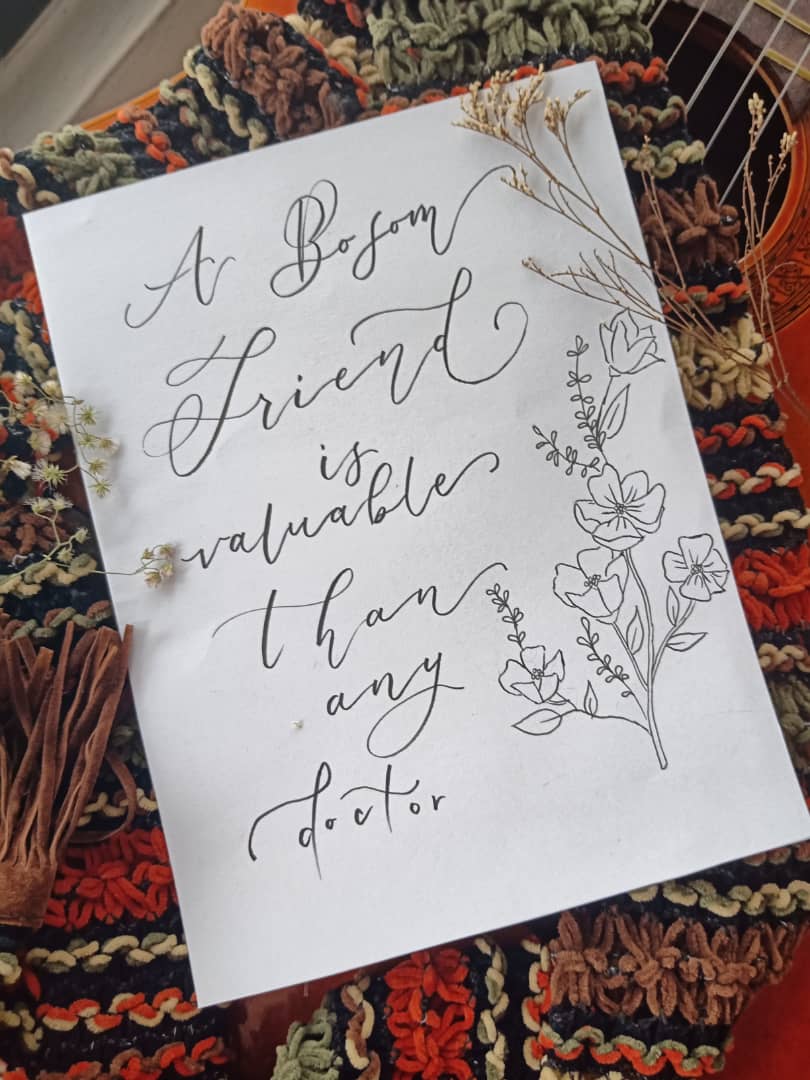 A Bosom
Friend
is
valuable
than
any
doctor